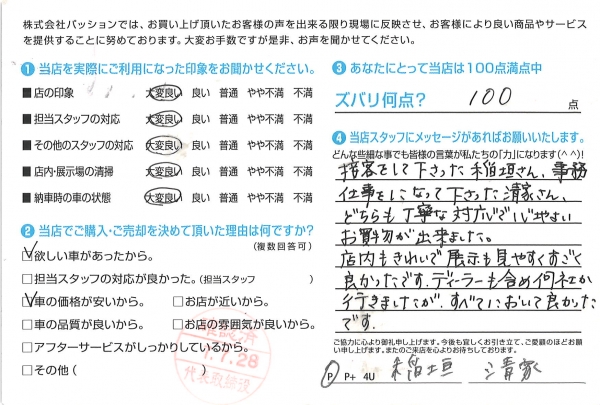 株式会社パッションでは、お買い上げ頂いたお客様の声を出来る限り現場に反映させ、お客様により良い商品やサービス
を提供することに努めております。大変お手数ですが是非、お声を聞かせてください。
❶ 当店を実際にご利用になった印象をお聞かせください。
■ 店の印象 大変良い 良い 普通 やや不満 不満
■ 担当スタッフの対応 大変良い 良い 普通 やや不満 不満
■ その他のスタッフの対応 大変良い 良い 普通 やや不満 不満
■ 店内・展示場の清掃 大変良い 良い 普通 やや不満 不満
■ 納車時の車の状態 大変良い 良い 普通 やや不満 不満
❷ 当店でご購入・ご売却を決めて頂いた理由は何ですか?
(複数回答可)
☑欲しい車があったから。
□担当スタッフの対応が良かった。(担当スタッフ )
☑車の価格が安いから。 □お店が近いから。
□車の品質が良いから。 □お店の雰囲気が良いから。
□アフターサービスがしっかりしているから。
□その他 ( )
7.28
代表取締役
❸ あなたにとって当店は100点満点中
ズバリ何点? 100 点
❹ 当店スタッフにメッセージがあればお願いいたします。
どんな些細な事でも皆様の言葉が私たちの「力」になります(^^)!
接客をして下さった稲垣さん、事務
仕事をしになって下さった清家さん、
どちらも丁寧な対応で心地よい
お買物が出来ました。
店内もきれいで展示も見やすくすごく
良かったです。ディーラーも含め何社か
行きましたが、すべてにおいて良かった
です。
ご協力に心より御礼申し上げます。今後も宜しくお引き立て、ご愛顧のほどお願
い申し上げます。またのご来店を心よりお待ちしております。
P P+ 4U 稲垣 清家